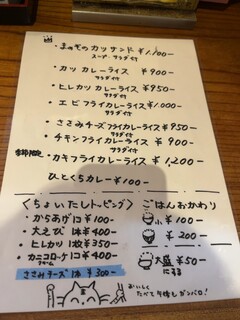 ・まのぞのカツサンド ¥1,100-
スープ・サラダ付
・カツ カレーライス ¥900-
サラダ付
・ヒレカツ カレーライス ¥950-
サラダ付
・エビフライカレーライス ¥1,150-
サラダ付
・ささみチーズフライカレーライス ¥950-
サラダ付
・チキンフライカレーライス ¥900-
サラダ付
季節限定
・カキフライカレーライス ¥1,200-
ひとくちカレー ¥100-
〈ちょいたしトッピング〉
・からあげ 1コ ¥100-
・大えび 1本 ¥400-
・ヒレカツ 1枚 ¥350-
・カニコロッケ 1コ ¥400-
クリーム
ささみチーズ 1本 ¥300-
ごはんおかわり
小 ¥100-
¥200-
大盛 ¥50-
になる
おいしく
たべて 午後も ガンバロ!